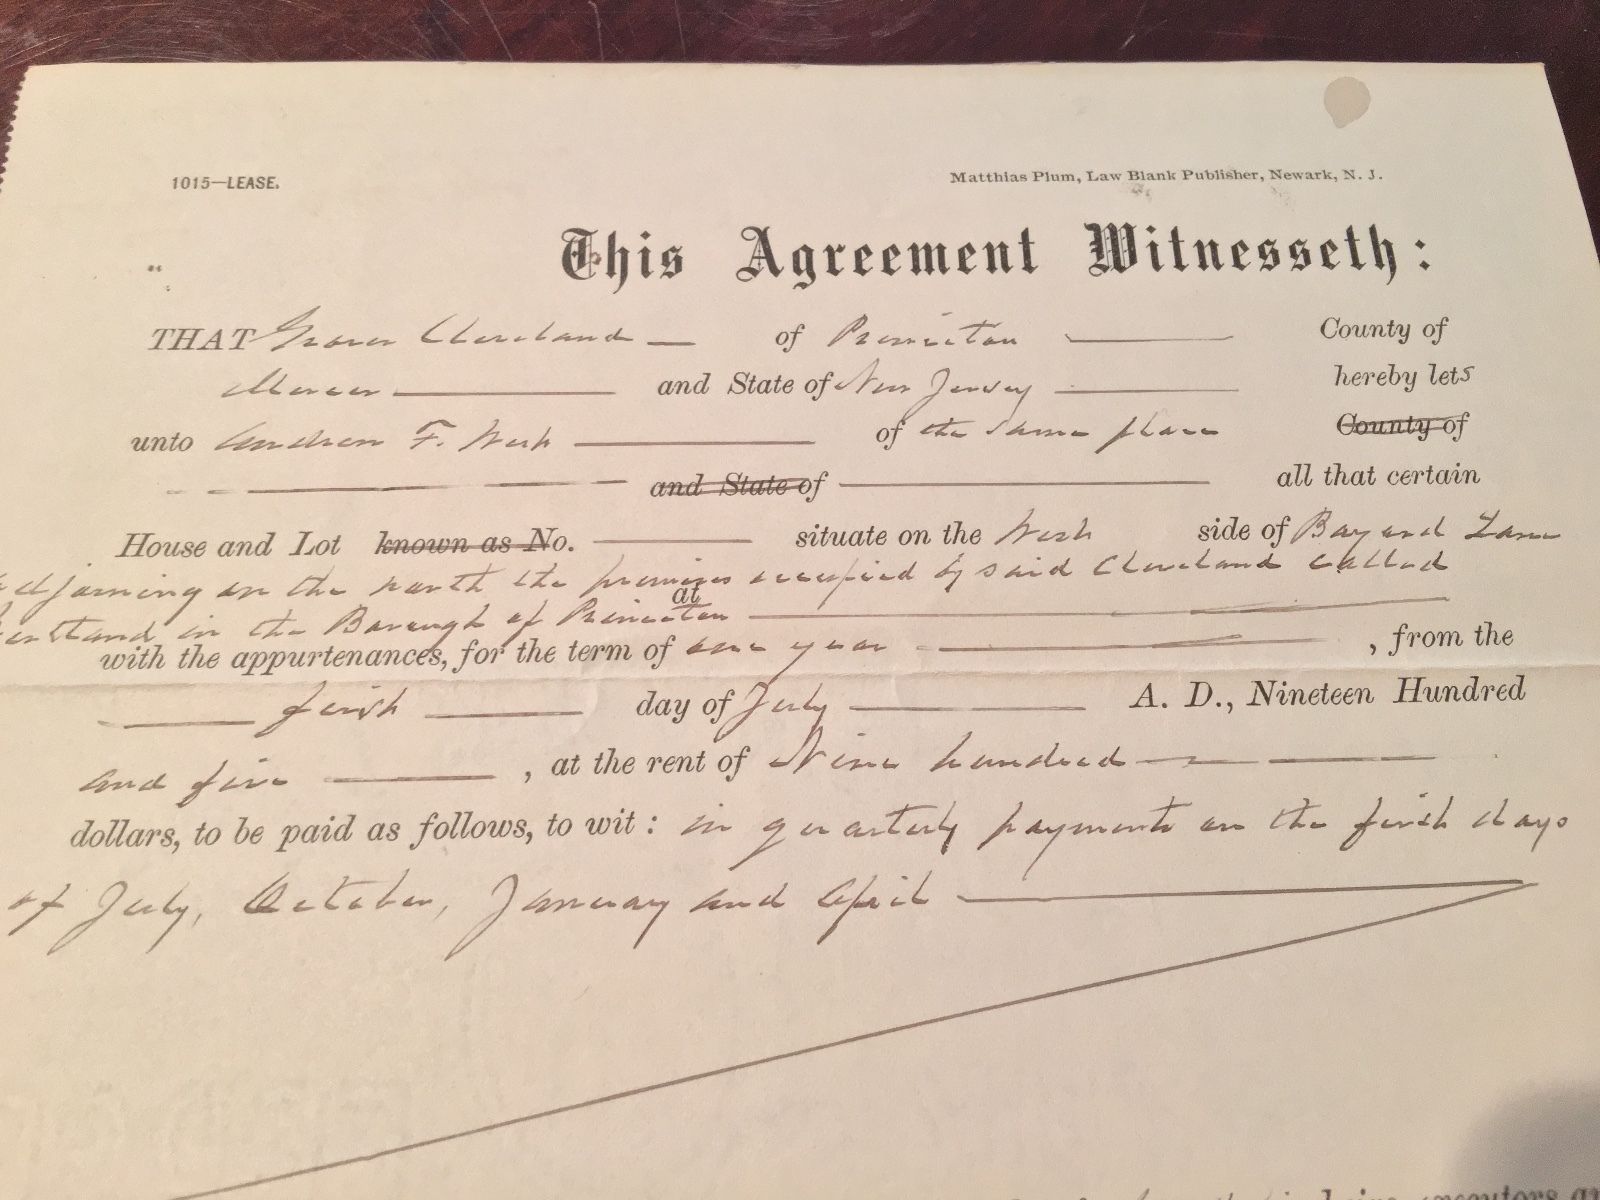 1015—LEASE.
Matthias Plum, Law Blank Publisher, Newark, N. J.
This Agreement Witnesseth:
THAT Grover Cleveland of Princeton County of
Mercer and State of New Jersey hereby lets
unto Andrew F. West of the same place County of
and State of all that certain
House and Lot known as No. situate on the West side of Bayard Lane
adjoining on the north the premises occupied by said Cleveland called
in the Borough of Princeton
at
with the appurtenances, for the term of one year , from the
first day of July A. D., Nineteen Hundred
and five , at the rent of Nine hundred
dollars, to be paid as follows, to wit: in quarterly payments on the first days
of July, October, January and April
executors